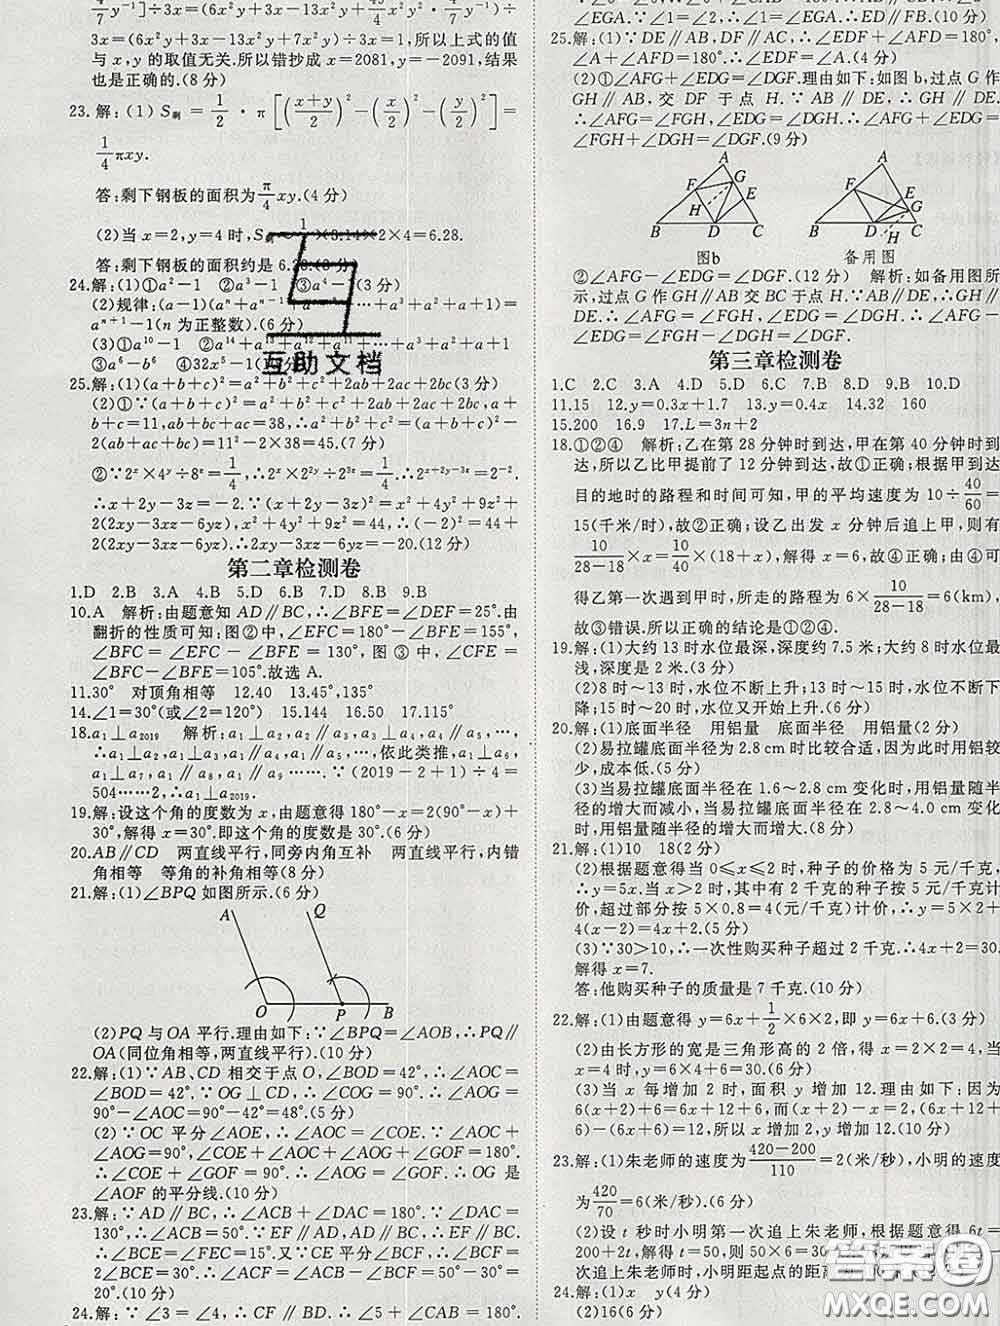 3x=(6x³y-3x-13x²y+7x²y)÷
3x=(6x-3x)÷3x=1,所以上式的值
与x,y的取值无关.所以错抄成x=2081,y=-2091,结果
也是正确的.(8分)
答:剩下钢板的面积为π/4 xy.(4分)
剩下钢板的面积约是6.28.(8分)
24.解:(1)①a²-1 ②a³-1 ③a⁴-1(3分)
aⁿ⁺¹-1(n为正整数).(6分)
③a⁶-b⁶ ④32x⁵-1(10分)
互助文档
25.解:(1)(a+b+c)²=a²+b²+c²+2ab+2ac+2bc(3分)
(2)①∵(a+b+c)²=a²+b²+c²+2ab+2ac+2bc,a+
b+c=11,ab+bc+ac=38,∴a²+b²+c²=(a+b+c)²-
2(ab+ac+bc)=11²-2×38=45.(7分)
②∵2ˣ×4ʸ÷8ᶻ=1/4,∴2ˣ×2²ʸ÷2³ᶻ=1/4,∴2ˣ⁺²ʸ⁻³ᶻ=2⁻².
∴x+2y-3z=-2.∵(x+2y-3z)²=x²+4y²+9z²+
2(2xy-3xz-6yz),x²+4y²+9z²=44,∴(-2)²=44+
2(2xy-3xz-6yz).∴2xy-3xz-6yz=-20.(12分)
第二章检测卷
1.D 2.B 3.A 4.B 5.D 6.B 7.D 8.B 9.B
10.A 解析:由题意知AD∥BC,∴∠BFE=∠DEF=25°.由
翻折的性质可知:图②中,∠EFC=180°-∠BFE=155°,
∠BFC=∠EFC-∠BFE=130°,图③中,∠CFE=
∠BFC-∠BFE=105°.故选A.
11.30° 对顶角相等 12.40 13.45°,135°
14.∠1=30°(或∠2=120°) 15.144 16.50 17.115°
18.a₁⊥a₂₀₁₉ 解析:a₁⊥a₂,a₂∥a₃,a₃⊥a₄,a₄∥a₅,…,
∴a₁⊥a₂,a₁⊥a₃,a₁∥a₄,a₁∥a₅,…,依此类推,a₁⊥a₆,
a₁⊥a₇,a₁∥a₈,a₁∥a₉,….∵(2019-2+1)÷4=
504……2,∴a₁⊥a₂₀₁₉.
19.解:设这个角的度数为x,由题意得180°-x=2(90°-x)+
30°,解得x=30°.即这个角的度数是30°.(6分)
20.AB∥CD 两直线平行,同旁内角互补 两直线平行,内错
角相等 等角的补角相等(8分)
21.解:(1)∠BPQ如图所示.(6分)
A Q
O P B
(2)PQ与OA平行.理由如下:∵∠BPQ=∠AOB,∴PQ∥
OA(同位角相等,两直线平行).(10分)
22.解:(1)∵AB、CD相交于点O,∠BOD=42°,∴∠AOC=
∠BOD=42°.∵OG⊥CD,∴∠COG=90°,∴∠AOG=
∠COG-∠AOC=90°-42°=48°.(5分)
(2)∵OC平分∠AOE,∴∠AOC=∠COE.∵∠AOC+
∠AOG=90°,∠AOC+∠COE+∠AOG+∠GOF=180°,
∴∠COE+∠GOF=90°.∴∠AOG=∠GOF.∴OG是
∠AOF的平分线.(10分)
23.解:∵AD∥BC,∴∠ACB+∠DAC=180°.∵∠DAC=
130°,∴∠ACB=50°.∵EF∥AD,AD∥BC,∴EF∥BC.
∴∠BCE=∠FEC=15°.又∵CE平分∠BCF,∴∠BCF=
2∠BCE=30°.∴∠ACF=∠ACB-∠BCF=50°-30°=
20°.(10分)
24.解:(1)∵∠3=∠4,∴CF∥BD.∴∠5+∠CAB=180°.
∠EGA.∵∠1=∠2,∴∠1=∠EGA.∴ED∥FB.(10分)
25.解:(1)∵DE∥AB,DF∥AC,∴∠EDF+∠AFD=180°,
∠A+∠AFD=180°.∴∠EDF=∠A.(4分)
(2)①∠AFG+∠EDG=∠DGF.理由如下:如图b,过点G作
GH∥AB,交DF于点H.∵AB∥DE,∴GH∥DE.
∴∠AFG=∠FGH,∠EDG=∠DGH.∴∠AFG+∠EDG=
∠FGH+∠DGH=∠DGF.(9分)
A F G E H B D C
A F E G B D C H
图b 备用图
②∠AFG-∠EDG=∠DGF.(12分) 解析:如备用图所
示,过点G作GH∥AB交BC于点H.∵AB∥DE,∴GH∥
DE.∴∠AFG=∠FGH,∠EDG=∠DGH.∴∠AFG-
∠EDG=∠FGH-∠DGH=∠DGF.
第三章检测卷
1.C 2.C 3.A 4.D 5.D 6.C 7.B 8.B 9.B 10.D
11.15 12.y=0.3x+1.7 13.y=0.4x 14.32 160
15.200 16.9 17.L=3n+2
18.①②④ 解析:乙在第28分钟时到达,甲在第40分钟时到
达,所以乙比甲提前了12分钟到达,故①正确;根据甲到达
目的地时的路程和时间可知,甲的平均速度为10÷40/60=
15(千米/时),故②正确;设乙出发x分钟后追上甲,则有
10/(28-18)×x=10/40×(18+x),解得x=6,故④正确;由④可
得乙第一次遇到甲时,所走的路程为6×10/(28-18)=6(km),
故③错误.所以正确的结论是①②④.
19.解:(1)大约13时水位最深,深度约7.5米;大约8时水位最
浅,深度是2米.(3分)
(2)8时~13时,水位不断上升;13时~15时,水位不断下
降;15时~20时,水位又开始上升.(6分)
20.解:(1)底面半径 用铝量 底面半径 用铝量(2分)
(2)易拉罐底面半径为2.8cm时比较合适,因为此时用铝较
少,成本低.(5分)
(3)当易拉罐底面半径在1.6~2.8cm变化时,用铝量随半径
的增大而减小,当易拉罐底面半径在2.8~4.0cm变化
时,用铝量随半径的增大而增大.(8分)
21.解:(1)10 18(2分)
(2)根据题意得当0≤x≤2时,种子的价格为5元/千克,
∴y=5x.当x>2时,其中有2千克的种子按5元/千克计
价,超过部分按5×0.8=4(元/千克)计价,∴y=5×2+
4(x-2)=4x+2.(5分)
(3)∵30>10,∴一次性购买种子超过2千克.∴4x+2=30.
解得x=7.
答:他购买种子的质量是7千克.(10分)
22.解:(1)由题意得y=6x+1/2×6×2,即y=6x+6.(3分)
(2)由长方形的宽是三角形高的2倍,得x=2×2=4,当
(3)当x每增加2时,面积y增加12.理由如下:因为
6(x+2)+6=6x+12+6,而(x+2)-x=2,(6x+12+
6)-(6x+6)=12,所以x增加2,y增加12.(10分)
23.解:(1)朱老师的速度为(420-200)/110=2(米/秒),小明的速度
为420/70=6(米/秒).(6分)
(2)设t秒时小明第一次追上朱老师,根据题意得6t=
200+2t,解得t=50,则50×6=300
次追上朱老师时,小明距起点的距离
24.解:(1)x y(4分)
(2)16(6分)
答案圈
MXQE.COM